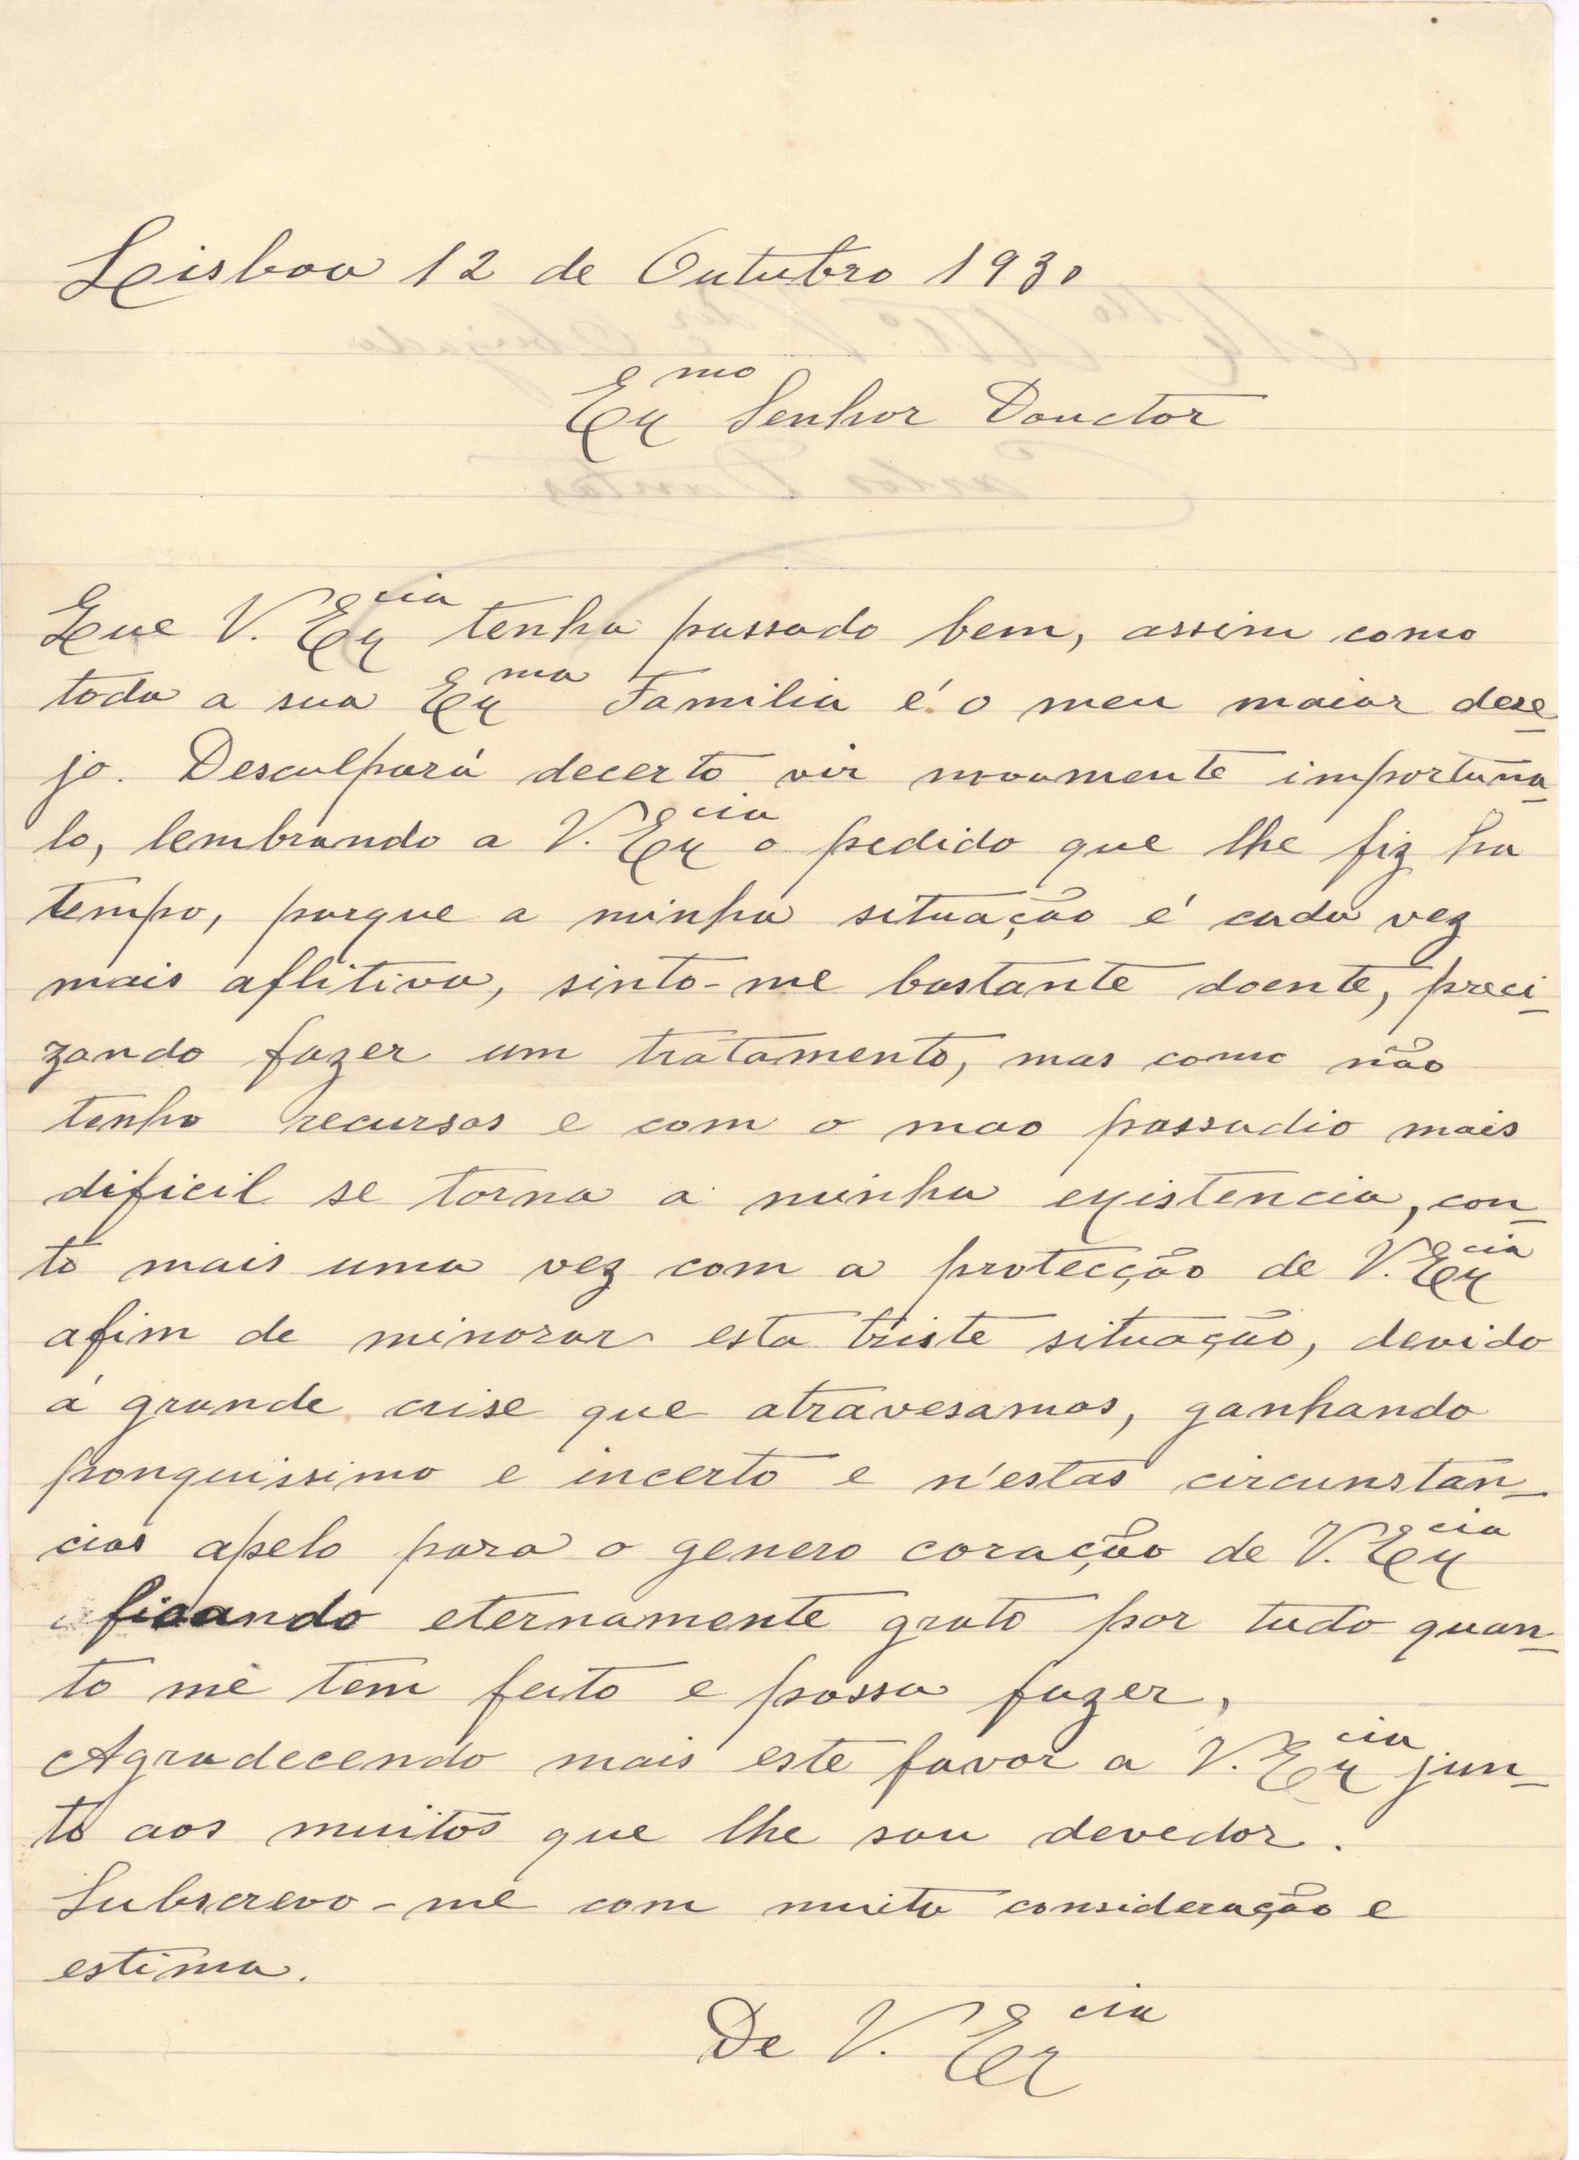 Lisboa 12 de Outubro 1930
Exmo Senhor Douctor
Que V. Excia tenha passado bem, assim como
toda a sua Exma Familia é o meu maior dese-
jo. Desculpará decerto vir novamente importuna-
lo, lembrando a V. Excia o pedido que lhe fiz ha
tempo, porque a minha situação é cada vez
mais aflitiva, sinto-me bastante doente, preci-
zando fazer um tratamento, mas como não
tenho recursos e com o mao passadio mais
dificil se torna a minha existencia, con-
to mais uma vez com a protecção de V. Excia
afim de minorar esta triste situação, devido
á grande crise que atravesamos, ganhando
pouquissimo e incerto e n'estas circunstan-
cias apelo para o genero coração de V. Excia
ficando eternamente grato por tudo quan-
to me tem feito e possa fazer.
Agradecendo mais este favor a V. Excia jun-
to aos muitos que lhe sou devedor.
Subscrevo-me com muita consideração e
estima.
De V. Excia